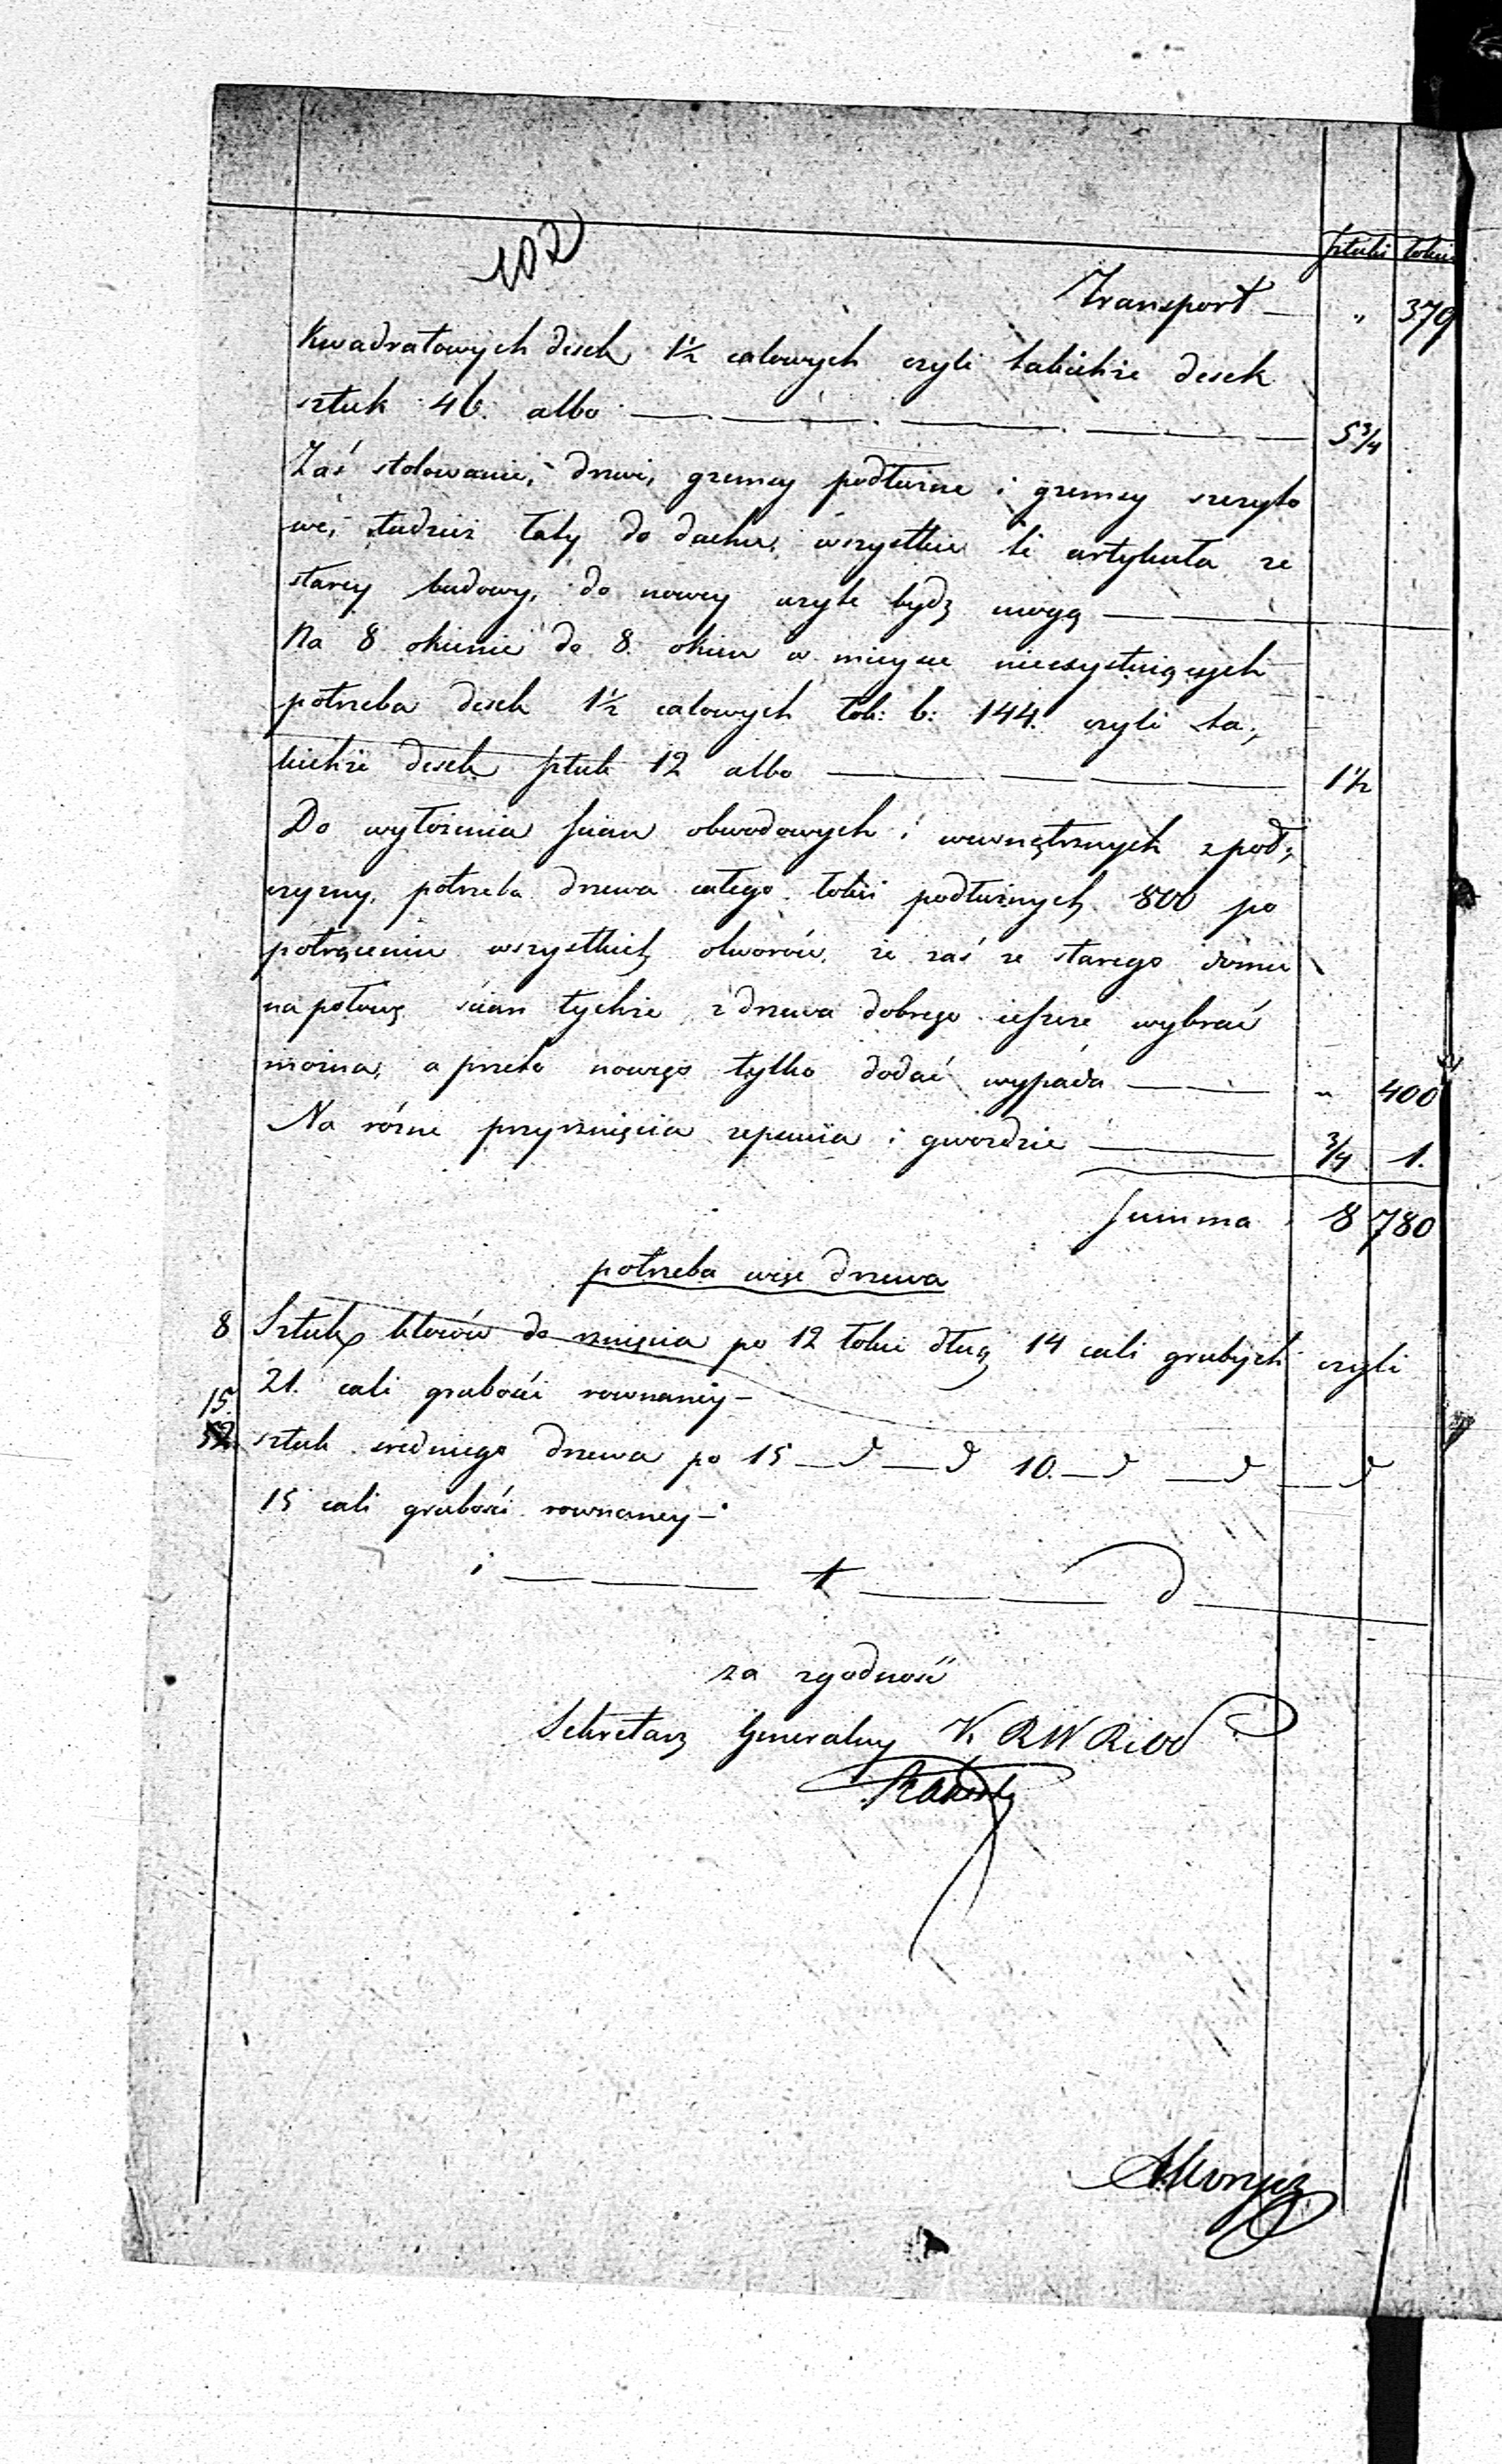 sztuki łokci
102
Transport — „ 379
Kwadratowych desek 1½ calowych czyli takichże desek
sztuk 46. albo — — — — 5¾
Zaś stolowanie, drzwi, gzemsy podłużne i gzemsy szczyto
we, tudzież łaty do dachu, wszystkie te artykuła ze
starey budowy, do nowey użyte bydź mogą — — —
Na 8 okienic do 8. okien w mieysce nieexystuiących
potrzeba desek 1½ calowych łok: b: 144. czyli ta;
kichże desek sztuk 12 albo — — — — 1½
Do wyłożenia ścian obwodowych i wewnętrznych z pod;
czyzny, potrzeba drzewa całego łokci podłużnych 800 po
potrąceniu wszystkich otworów, że zaś ze starego domu
na połowę ścian tychże z drzewa dobrego ieszcze wybrać
można, a przeto nowego tylko dodać wypada — — „ 400
Na różne przyrznięcia zepsucia i gwoździe — ¾ 1.
Summa 8 780
potrzeba więc drzewa
8 Sztuk klocow do rznięcia po 12 łokci dług. 14 cali grubych czyli
21. cali grubości rownaney —
15.
sztuk średniego drzewa po 15 — d — d 10. — d — d — d
15 cali grubości rownaney —
i — — — t — — — d —
za zgodność
Sekretarz Generalny K. R W R i O P